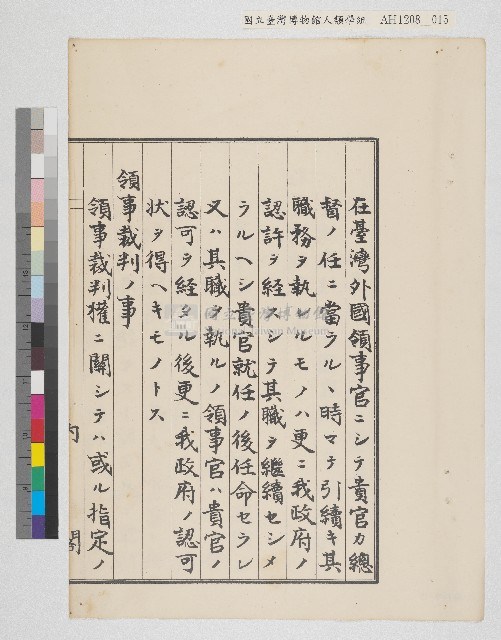 國立臺灣博物館人類學組 AH1208_015
在臺灣外國領事官ニシテ貴官カ總
督ノ任ニ當ラルヽ時マテ引續キ其
職務ヲ執ルモノハ更ニ我政府ノ
認許ヲ経スシテ其職ヲ繼續セシメ
ラルヘシ貴官就任ノ後任命セラレ
又ハ其職ヲ執ルノ領事官ハ貴官ノ
認可ヲ経タル後更ニ我政府ノ認可
状ヲ得ヘキモノトス
領事裁判ノ事
領事裁判權ニ關シテハ或ル指定ノ
内閣
國立臺灣博物館
National Taiwan Museum